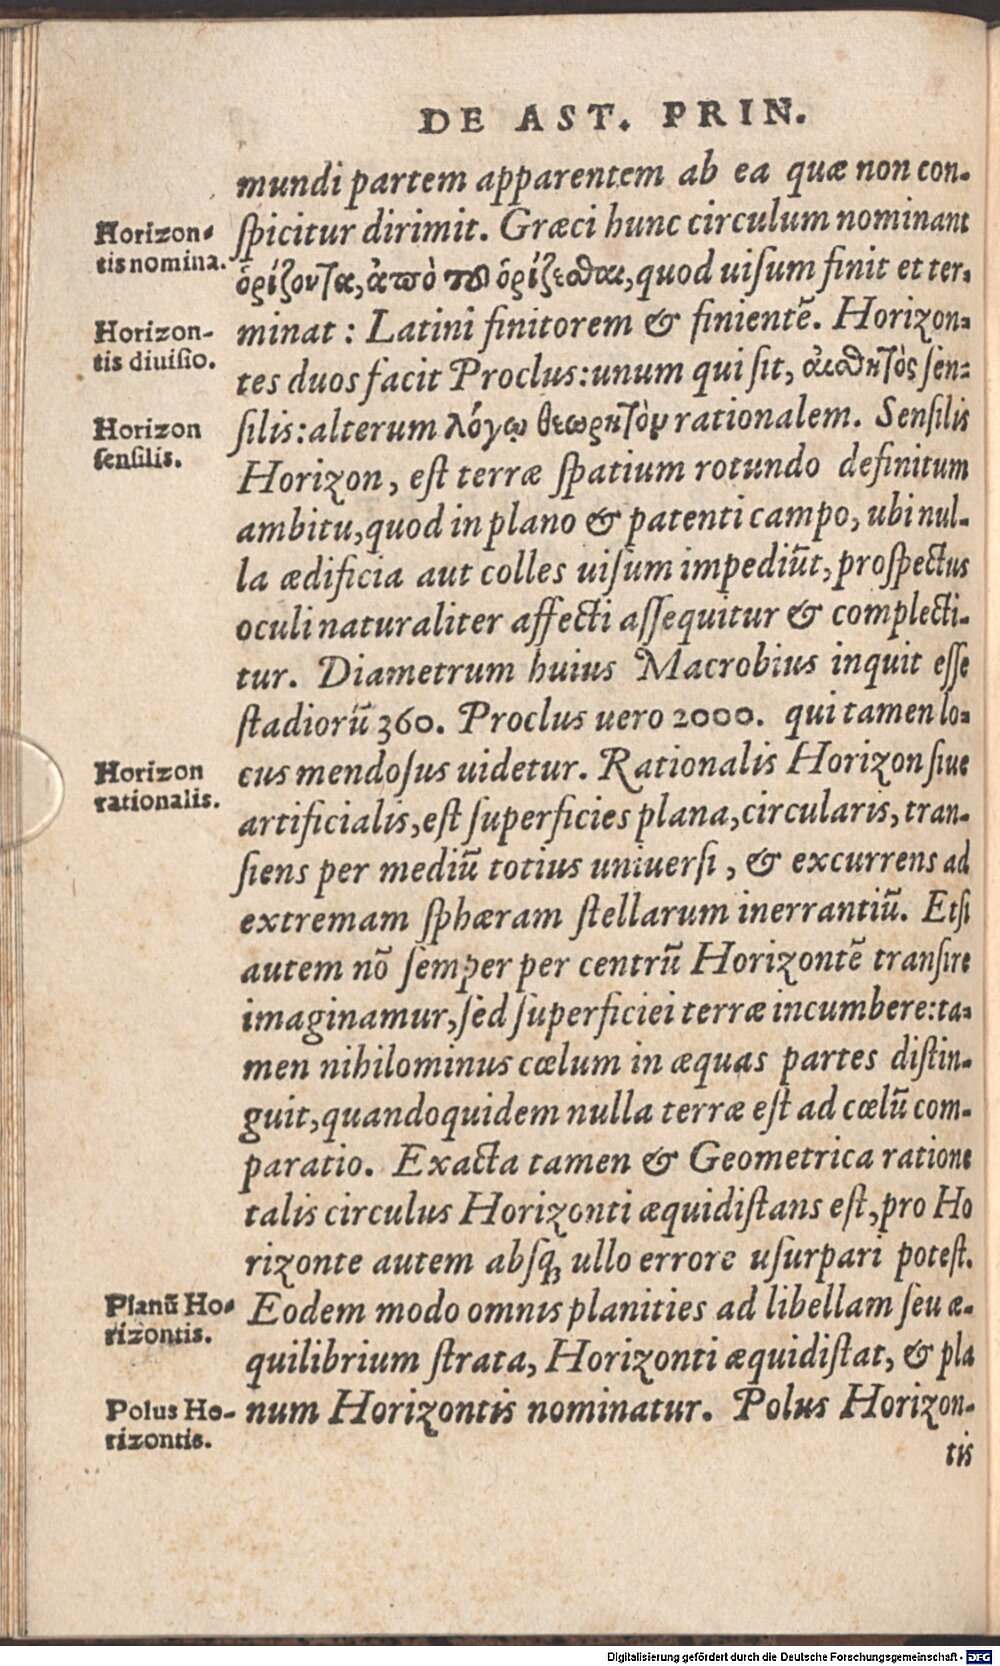 DE AST. PRIN.
mundi partem apparentem ab ea quæ non con-
Horizon-
tis nomina.
spicitur dirimit. Græci hunc circulum nominant
ὁρίζοντα, ἀπὸ τοῦ ὁρίζεσθαι, quod uisum finit et ter-
Horizon-
tis diuisio.
minat: Latini finitorem & finientē. Horizon-
tes duos facit Proclus: unum qui sit, αἰσθητὸς sen-
Horizon
sensilis.
silis: alterum λόγῳ θεωρητὸν rationalem. Sensilis
Horizon, est terræ spatium rotundo definitum
ambitu, quod in plano & patenti campo, ubi nul-
la ædificia aut colles uisum impediūt, prospectus
oculi naturaliter affecti assequitur & complecti-
tur. Diametrum huius Macrobius inquit esse
stadiorū 360. Proclus uero 2000. qui tamen lo-
Horizon
rationalis.
cus mendosus uidetur. Rationalis Horizon siue
artificialis, est superficies plana, circularis, tran-
siens per mediū totius uniuersi, & excurrens ad
extremam sphæram stellarum inerrantiū. Etsi
autem nō semper per centrū Horizontē transire
imaginamur, sed superficiei terræ incumbere: ta-
men nihilominus cœlum in æquas partes distin-
guit, quandoquidem nulla terræ est ad cœlū com-
paratio. Exacta tamen & Geometrica ratione
talis circulus Horizonti æquidistans est, pro Ho
rizonte autem absq; ullo errore usurpari potest.
Planū Ho-
rizontis.
Eodem modo omnis planities ad libellam seu æ-
quilibrium strata, Horizonti æquidistat, & pla
Polus Ho-
rizontis.
num Horizontis nominatur. Polus Horizon-
tis
Digitalisierung gefördert durch die Deutsche Forschungsgemeinschaft - DFG